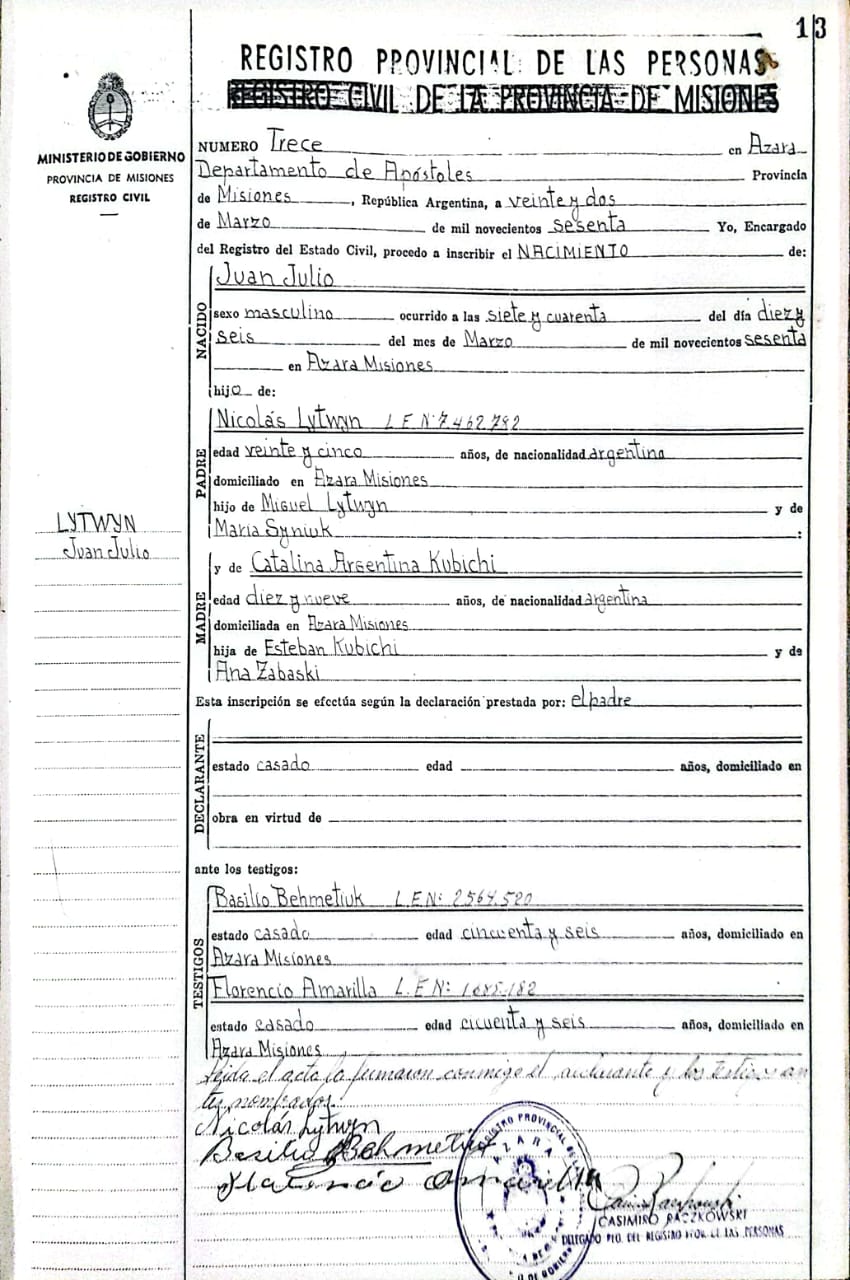 13
REGISTRO PROVINCIAL DE LAS PERSONAS
REGISTRO CIVIL DE LA PROVINCIA DE MISIONES
MINISTERIO DE GOBIERNO
PROVINCIA DE MISIONES
REGISTRO CIVIL
NUMERO Trece en Azara
Departamento de Apóstoles Provincia
de Misiones, República Argentina, a veinte y dos
de Marzo de mil novecientos sesenta Yo, Encargado
del Registro del Estado Civil, procedo a inscribir el NACIMIENTO de:
NACIDO
Juan Julio
sexo masculino ocurrido a las siete y cuarenta del día diez y
seis del mes de Marzo de mil novecientos sesenta
en Azara Misiones
hijo de:
PADRE
Nicolás Lytwyn L E Nº 7.462.792
edad veinte y cinco años, de nacionalidad argentina
domiciliado en Azara Misiones
hijo de Miguel Lytwyn y de
María Syniuk :
LYTWYN
Juan Julio
MADRE
y de Catalina Argentina Kubichi
edad diez y nueve años, de nacionalidad argentina
domiciliada en Azara Misiones
hija de Esteban Kubichi y de
Ana Zabaski
Esta inscripción se efectúa según la declaración prestada por: el padre
DECLARANTE
estado casado edad años, domiciliado en
obra en virtud de
ante los testigos:
TESTIGOS
Basilio Behmetiuk L.E Nº: 2564.520
estado casado edad cincuenta y seis años, domiciliado en
Azara Misiones
Florencio Amarilla L.E Nº:
estado casado edad cicuenta y seis años, domiciliado en
Azara Misiones
leida el acta la firmaron conmigo el declarante y los testigos an
tes nombrados.
Nicolás Lytwyn
Basilio Behmetiuk
Florencio Amarilla
REGISTRO PROVINCIAL DE
AZARA
CASIMIRO RACZKOWSKI
DELEGADO REG. DEL REGISTRO PROV. DE LAS PERSONAS